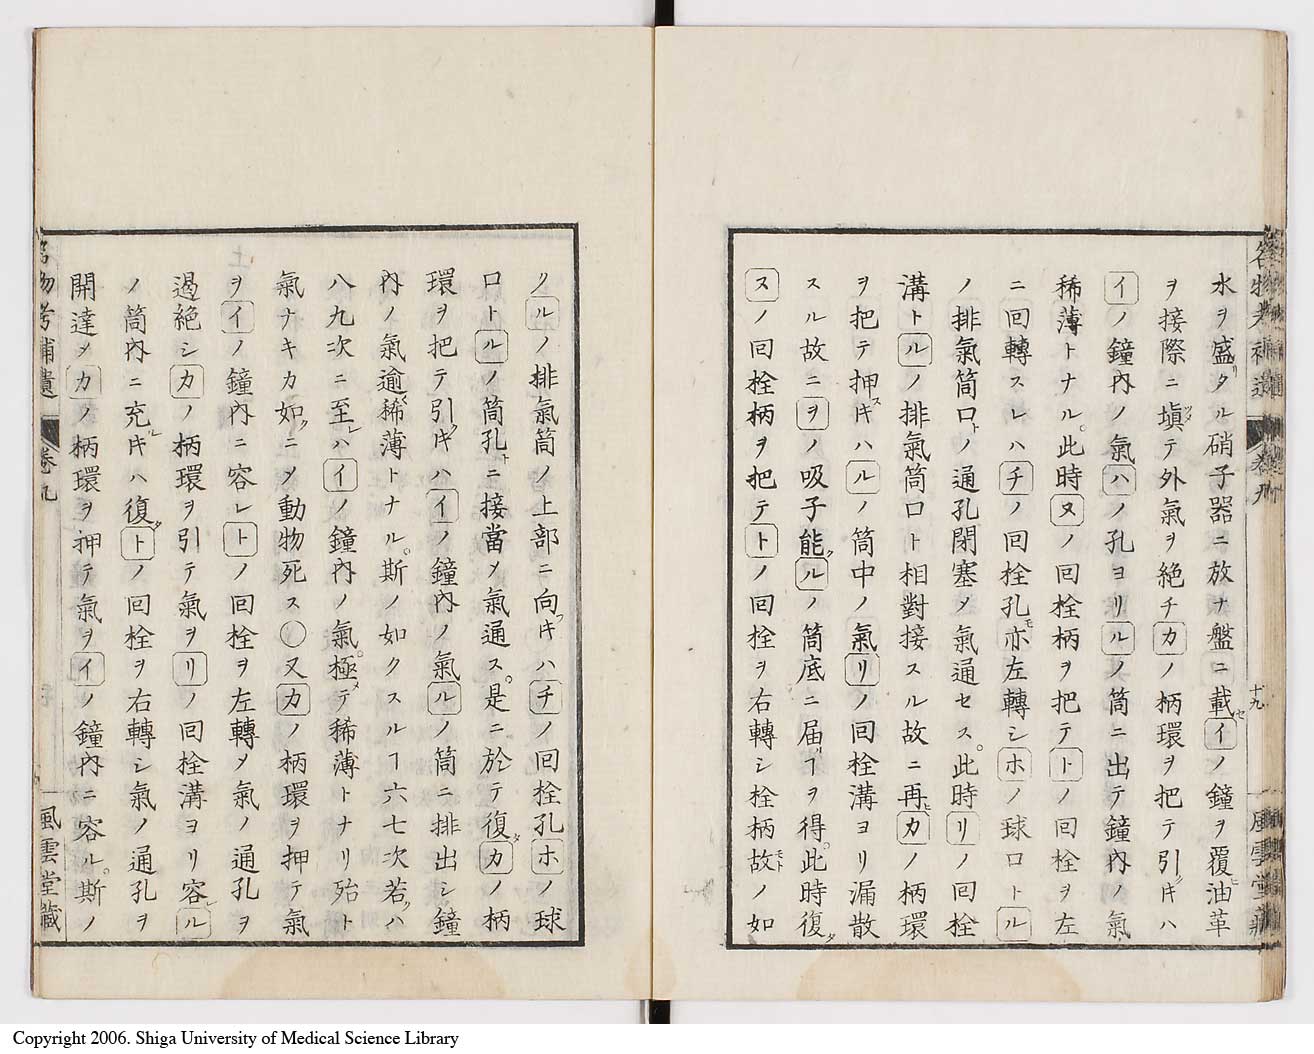 水ヲ盛リタル硝子器ニ放ナ盤ニ載セイノ鐘ヲ覆ヒ油革
ヲ接際ニ塡テ外氣ヲ絶チカノ柄環ヲ把テ引キハ
イノ鐘內ノ氣ハノ孔ヨリルノ筒ニ出テ鐘內ノ氣
稀薄トナル。此時ヌノ回栓柄ヲ把テトノ回栓ヲ左
ニ回轉スレハチノ回栓孔モ亦左轉シホノ球口トル
ノ排氣筒口トノ通孔閉塞メ氣通セス。此時リノ回栓
溝トルノ排氣筒口ト相對接スル故ニ再ヒカノ柄環
ヲ把テ押スキハルノ筒中ノ氣リノ回栓溝ヨリ漏散
スル故ニヲノ吸子能クルノ筒底ニ届リヿヲ得。此時復タ
ヌノ回栓柄ヲ把テトノ回栓ヲ右轉シ栓柄故モトノ如
クルノ排氣筒ノ上部ニ向フキハチノ回栓孔ホノ球
口トルノ筒孔トニ接當メ氣通ス。是ニ於テ復タカノ柄
環ヲ把テ引クキハイノ鐘內ノ氣ルノ筒ニ排出シ鐘
內ノ氣逾稀薄トナル。斯ノ如クスルヿ六七次若クハ
八九次ニ至レハイノ鐘內ノ氣極メテ稀薄トナリ殆ト
氣ナキカ如クニメ動物死ス〇又カノ柄環ヲ押テ氣
ヲイノ鐘內ニ容レトノ回栓ヲ左轉メ氣ノ通孔ヲ
遏絶シカノ柄環ヲ引テ氣ヲリノ回栓溝ヨリ容レル
ノ筒內ニ充レキハ復タトノ回栓ヲ右轉シ氣ノ通孔ヲ
開達メカノ柄環ヲ押テ氣ヲイノ鐘內ニ容ル。斯ノ
名物考補遺 卷九
十九
風雲堂藏
名物考補遺 卷九
風雲堂藏
Copyright 2006. Shiga University of Medical Science Library